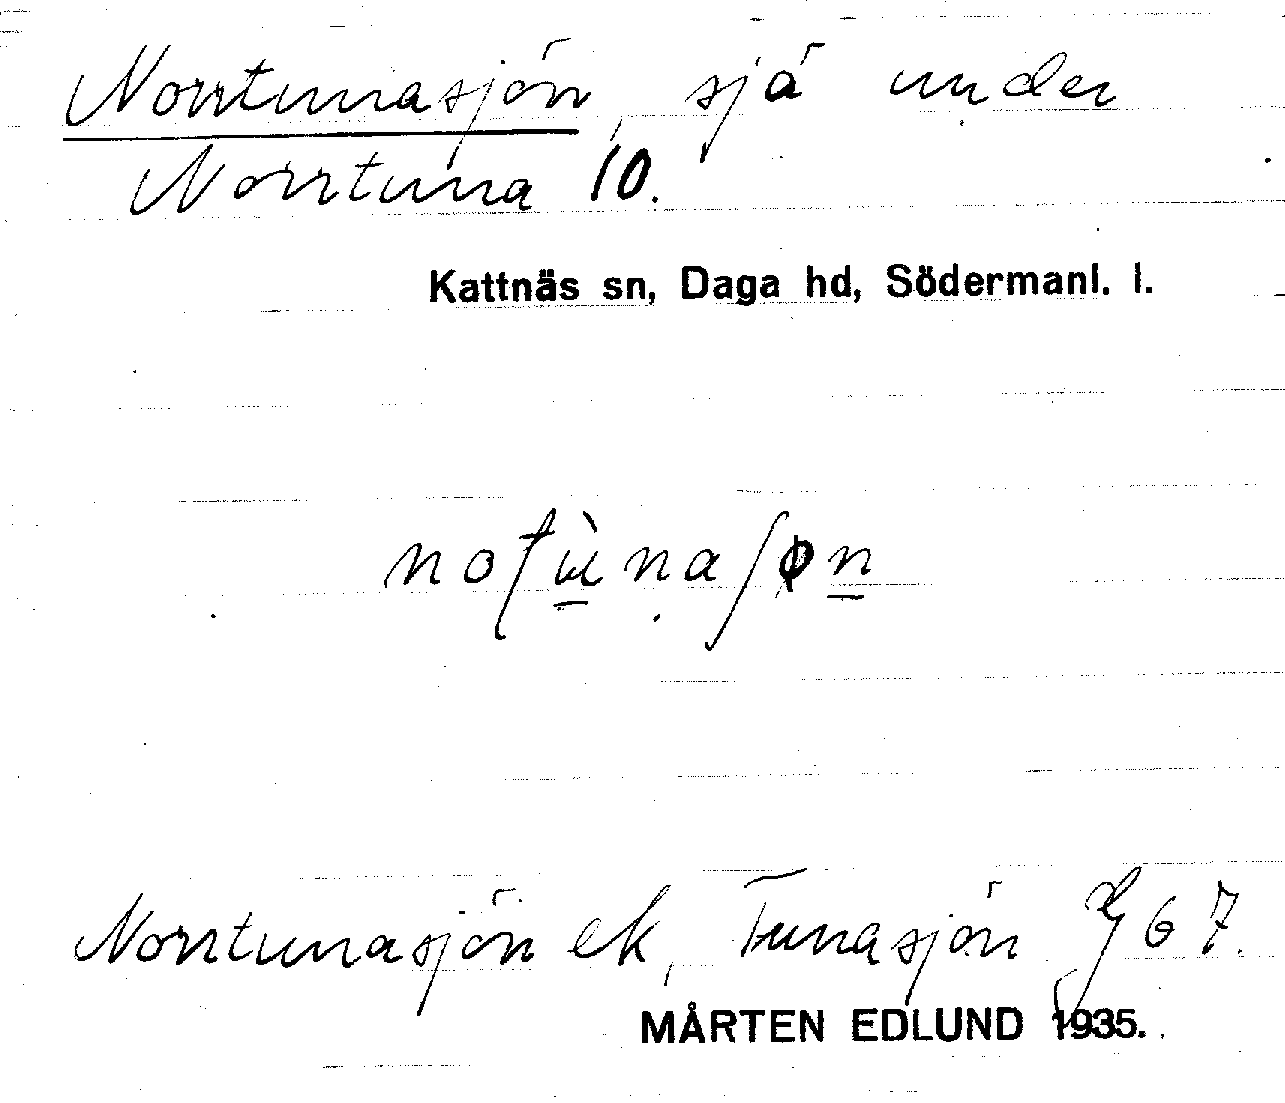 Norrtunasjön, sjö under
Norrtuna 10.
Kattnäs sn, Daga hd, Södermanl. l.
Norrtunasjön ek, Tunasjön G 67.
MÅRTEN EDLUND 1935.